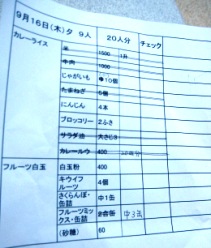 9月16日(木)夕 9人 20人分 チェック
カレーライス
米 1500
牛肉 1000
じゃがいも 10個
たまねぎ 5個
にんじん 4本
ブロッコリー 2ふさ
サラダ油 大さじ3
カレールウ 400
フルーツ白玉 白玉粉 400
キウイフルーツ 4個
さくらんぼ・缶詰 中1缶
フルーツミックス・缶詰 中3缶
(砂糖) 60